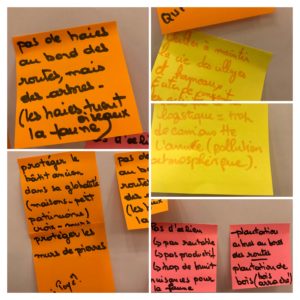 pas de haies
au bord des
routes, mais
des arbres.
(les haies tuent
oiseaux
la faune)
QUI
à maintenir
la vie de villages
et hameaux
logistique = trop
de camions tte
l'année (pollution
atmosphérique).
protéger le
bâti ancien
dans sa globalité
(maisons = petit
patrimoine)
croix = murs
protéger les
murs de pierres
pas de
au bord
routes
des
(les
la
pas d'éolien
pas rentable
pas productif
trop de bruit
nuisances pour
la faune
plantation
arbres au bord
des routes
plantation de
bois (bois
"arraché")